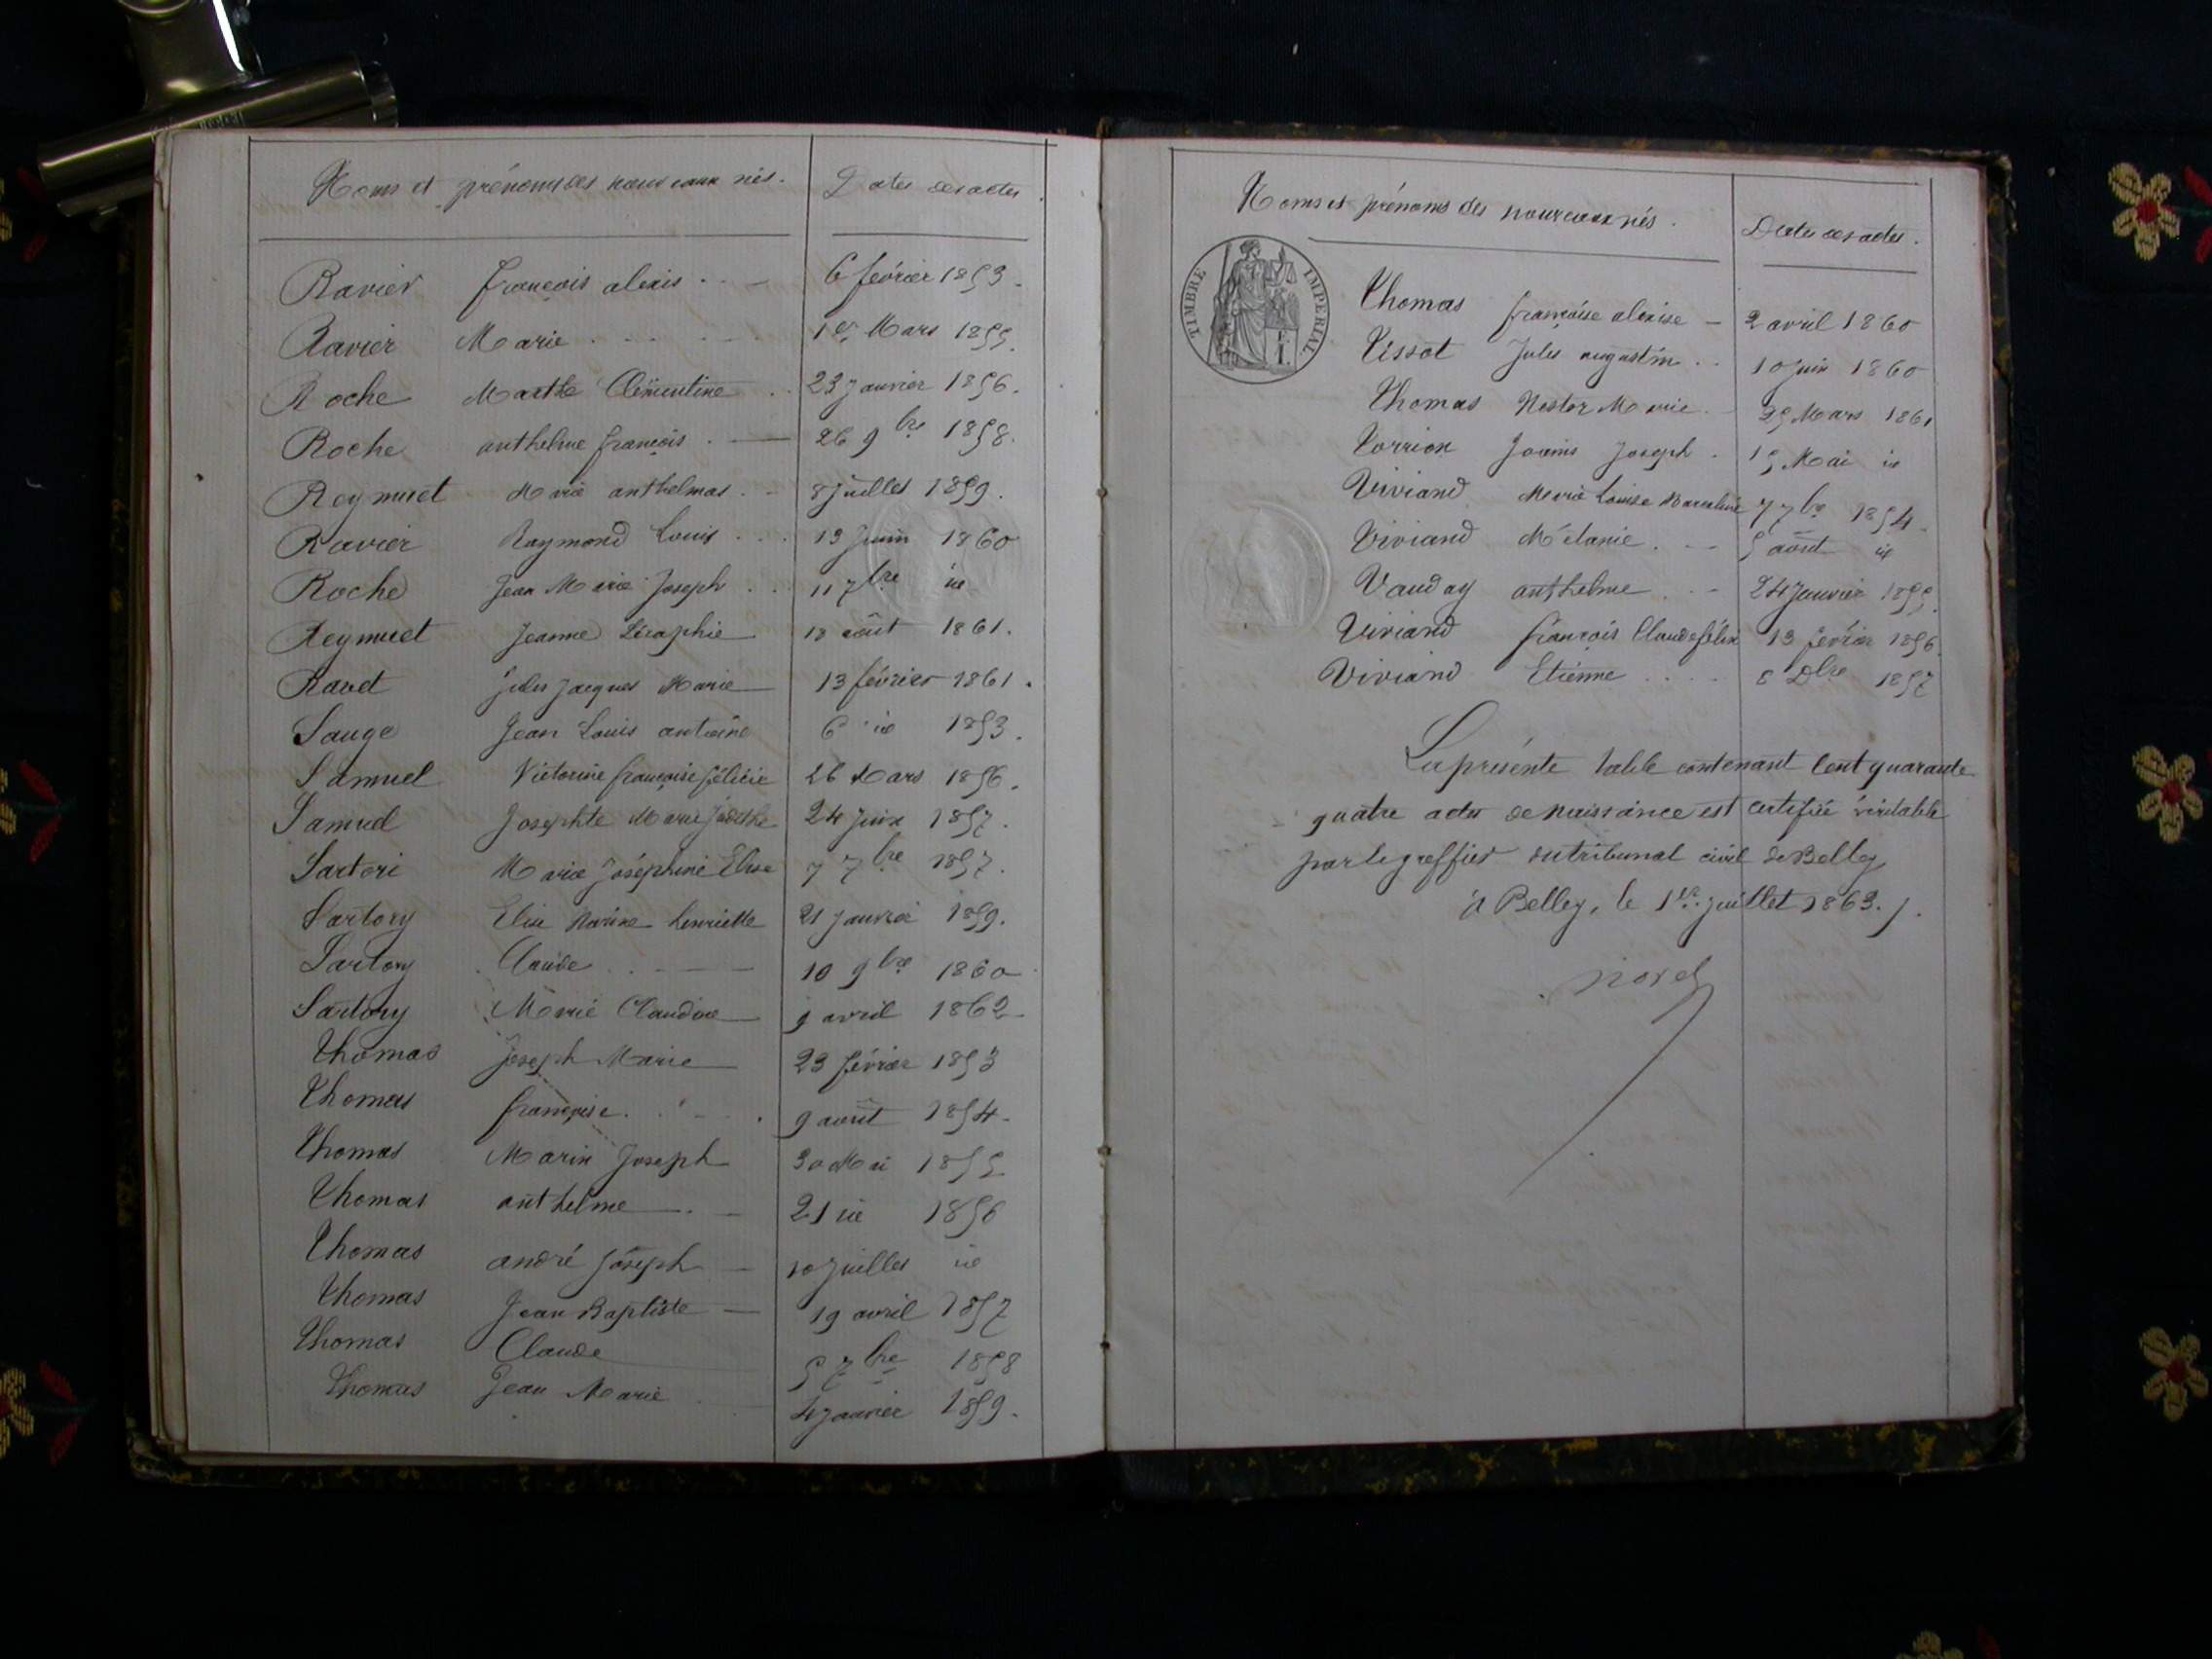 Noms et prénoms des nouveaux nés. Dates des actes.
Ravier françois alexis 6 février 1853.
Ravier Marie 1er Mars 1855.
Roche Marthe Clémentine 23 Janvier 1856.
Roche anthelme françois. 26 9bre 1858.
Reymuet Marie anthelmas. 8 Juillet 1859.
Ravier Raymond Louis 13 Juin 1860
Roche Jean Marie Joseph 11 7bre id
Reymuet Jeanne Séraphie 18 août 1861.
Ravet Jules Jacques Marie 13 février 1861.
Sauge Jean Louis antoine 6 id 1853.
Samuel Victorine françoise félicie 26 Mars 1856.
Samuel Josephte Marie Judithe 24 Juin 1857.
Sartori Marie Joséphine Elise 7 7bre 1857.
Sartory Elise Marine henriette 21 Janvier 1859.
Sartory Claude 10 9bre 1860
Sartory Marie Claudine 9 avril 1862
Thomas Joseph Marie 23 février 1853
Thomas françoise. 9 août 1854.
Thomas Marin Joseph 30 Mai 1855
Thomas anthelme 21 id 1856
Thomas andré Joseph 10 Juillet id
Thomas Jean Baptiste 19 avril 1857
Thomas Claude 5 7bre 1858
Thomas Jean Marie 4 Janvier 1859.
Noms et prénoms des nouveaux nés. Dates des actes.
TIMBRE IMPERIAL
Thomas françoise alexise 2 avril 1860
Tissot Jules augustin 10 Juin 1860
Thomas Nestor Marie 25 Mars 1861
Torrion Joanis Joseph. 15 Mai id
Viviand Marie Louise Marceline 7 7bre 1854
Viviand Mélanie. 5 août id
Vauday anthelme 24 Janvier 1855.
Viviand françois Claude félix 13 février 1856.
Viviand Etienne 8 Dbre 1857
La présente table contenant Cent quarante
quatre actes de naissance est certifiée véritable
par le greffier du tribunal civil de Belley
à Belley, le 1er juillet 1863.